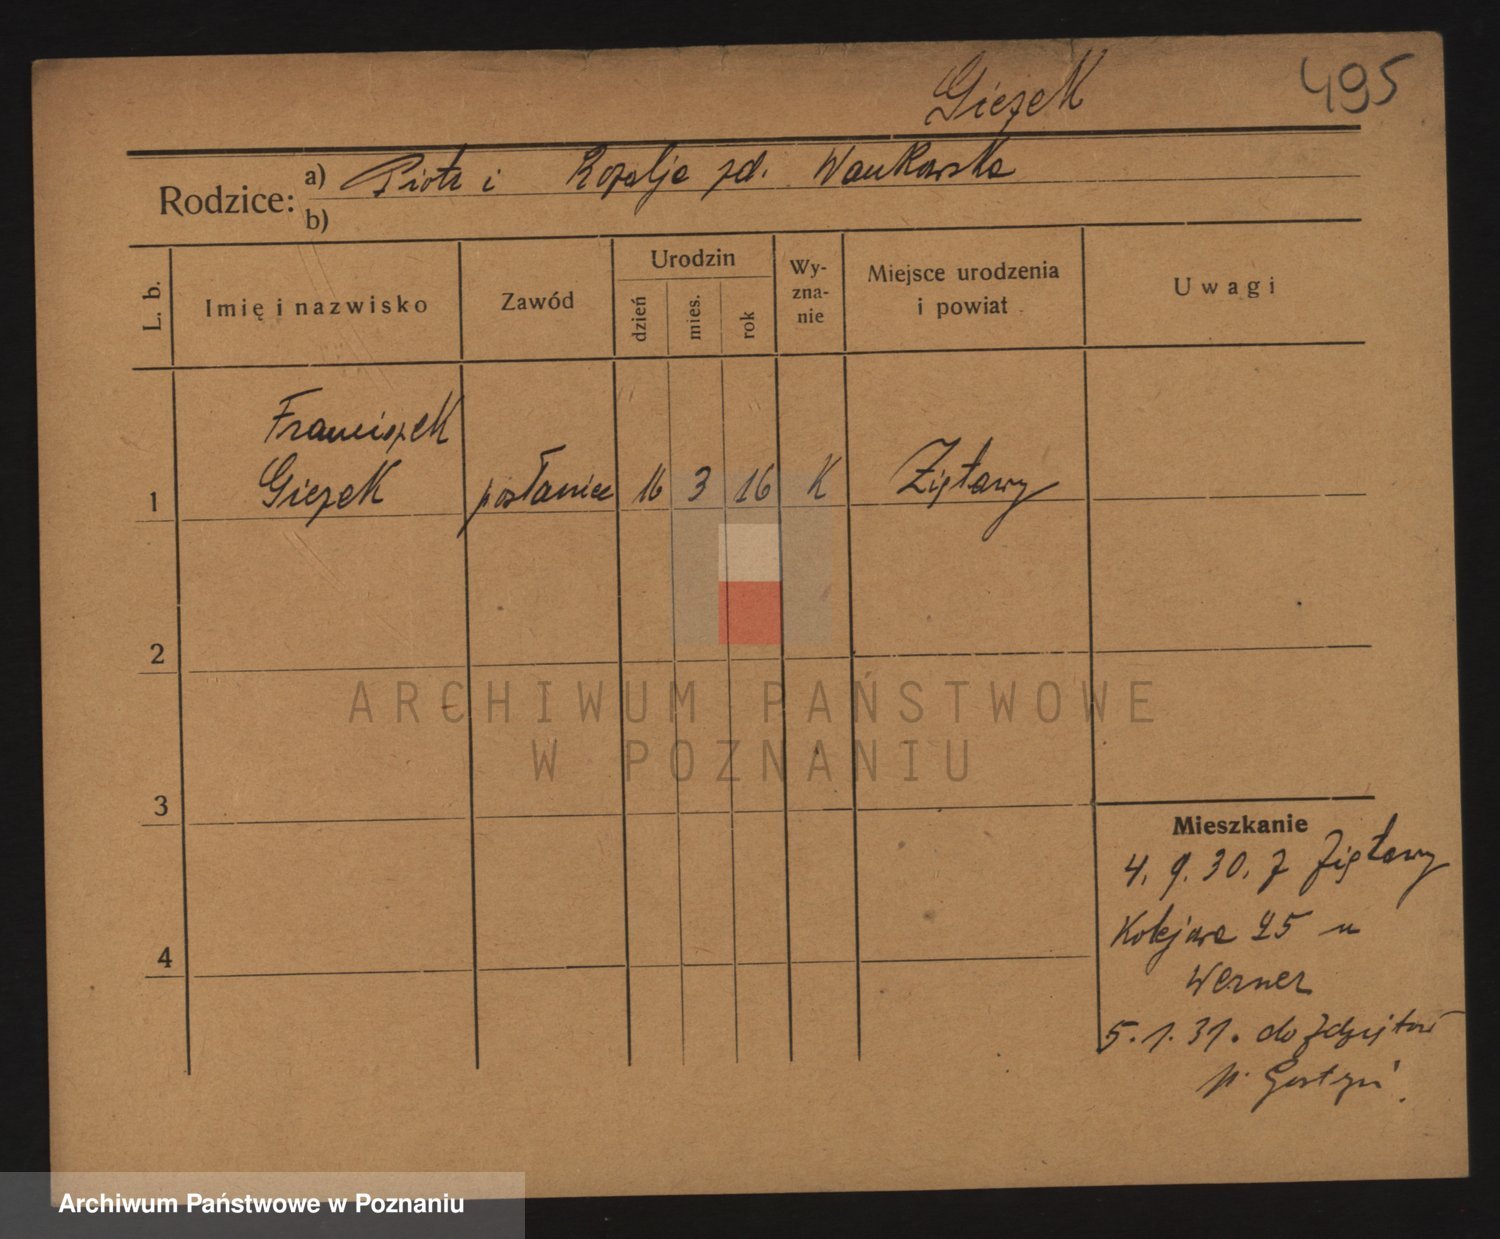 Giezek
495
Rodzice:
a) Piotr i Rozalja zd. Wankowska
b)
L. b.
Imię i nazwisko
Zawód
Urodzin
dzień
mies.
rok
Wy-
zna-
nie
Miejsce urodzenia
i powiat
Uwagi
Franciszek
1 Giezek posłaniec 16 3 16 K Ziętawy
2
3
4
Mieszkanie
4. 9. 30. z
Kolejowa 25 u
Werner
5. 1. 31. do
p. Gostyń
ARCHIWUM PAŃSTWOWE
W POZNANIU
Archiwum Państwowe w Poznaniu